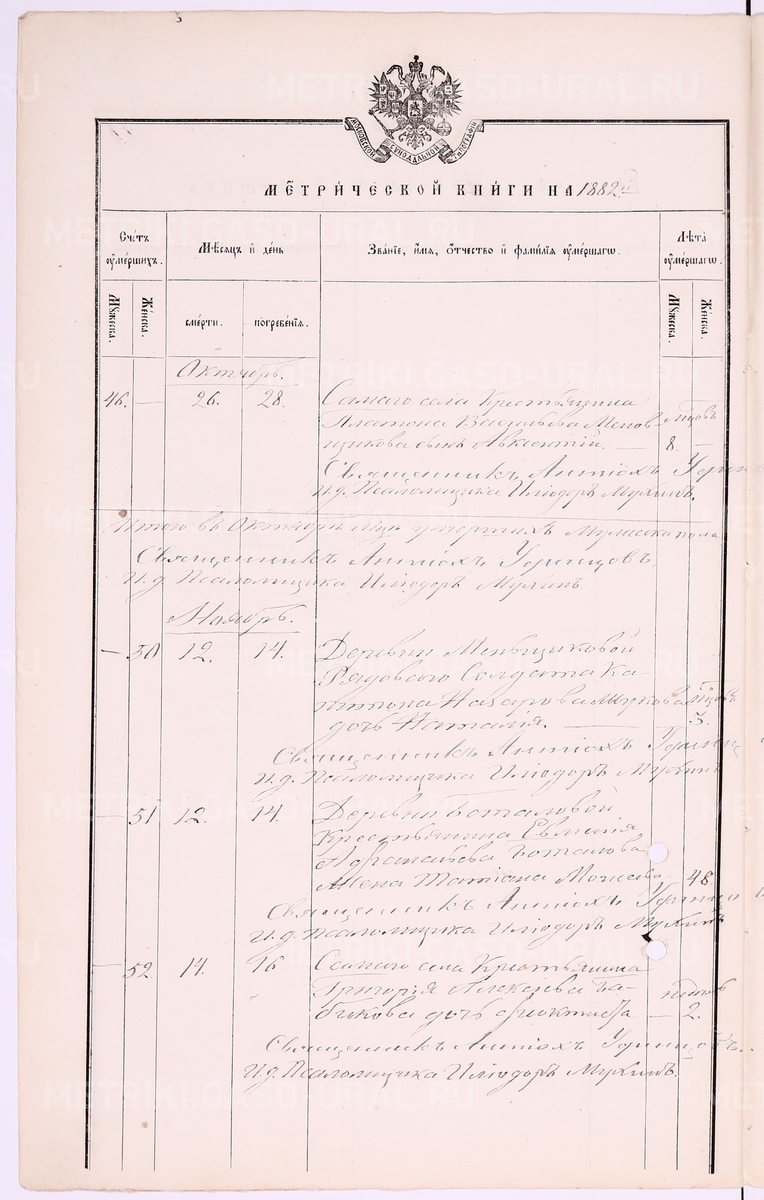 МОСКОВСКОЙ СѴНОДАЛЬНОЙ ТИПОГРАФІИ
МЕТРИЧЕСКОЙ КНИГИ НА 1882 й
Счетъ оумершихъ.
Мѣсяцъ и день
Званіе, имя, отчество и фамилія оумершагѡ.
Лѣта оумершагѡ.
Мꙋжеска.
Женска.
смерти.
погребенія.
Мꙋжеска.
Женска.
Октябрь.
46. — 26. 28. Самаго села Крестьянина
Платона Васильева Менов-
щикова сынъ Авксентій. — 8. —
Священникъ Антіохъ
И.д. Псаломщика Иліодоръ Мухинъ.
Итого въ Октябрѣ м-цѣ умершихъ Мужеска пола
Священникъ Антіохъ
И.д. Псаломщика Иліодоръ Мухинъ
Ноябрь.
— 50 12. 14. Деревни Меньщиковой
Рядоваго Солдата Ка-
питона Назарова
дочь Наталія. — 3.
Священникъ Антіохъ
И.д. Псаломщика Иліодоръ Мухинъ
— 51 12. 14. Деревни Боталовой
Крестьянина Евменія
Боталова
Жена Татіана Моисеева — 48.
Священникъ Антіохъ
И.д. Псаломщика Иліодоръ Мухинъ
— 52 14. 16. Самаго села Крестьянина
Григорія Алексѣева Ба-
бикова дочь Ѳиоктиста — 2.
Священникъ Антіохъ
И.д. Псаломщика Иліодоръ Мухинъ.
METRIKI.GASO-URAL.RU